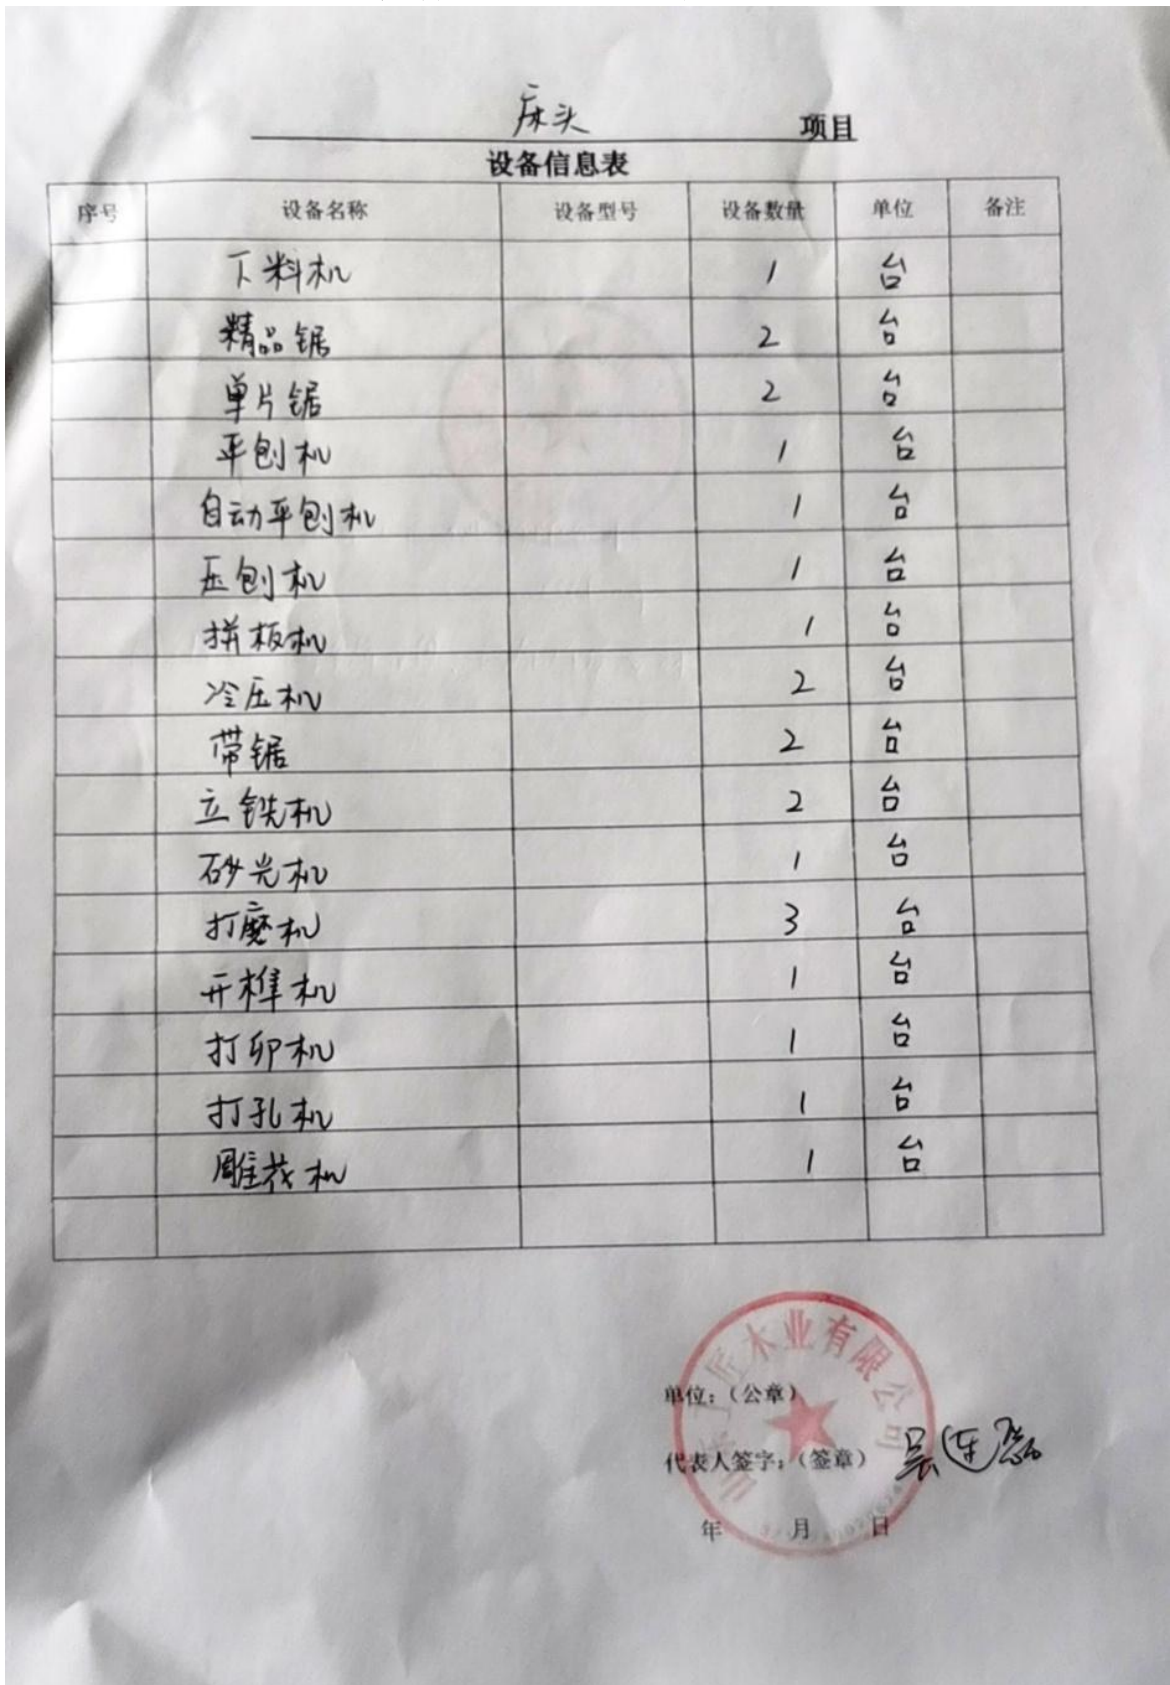 床头 项目
设备信息表
序号 设备名称 设备型号 设备数量 单位 备注
下料机 1 台
精品锯 2 台
单片锯 2 台
平刨机 1 台
自动平刨机 1 台
压刨机 1 台
拼板机 1 台
冷压机 2 台
带锯 2 台
立铣机 2 台
砂光机 1 台
打磨机 3 台
开榫机 1 台
打卯机 1 台
打孔机 1 台
雕花机 1 台
匠木业有限公司
单位：（公章）
代表人签字：（签章） 吴连磊
年 月 日